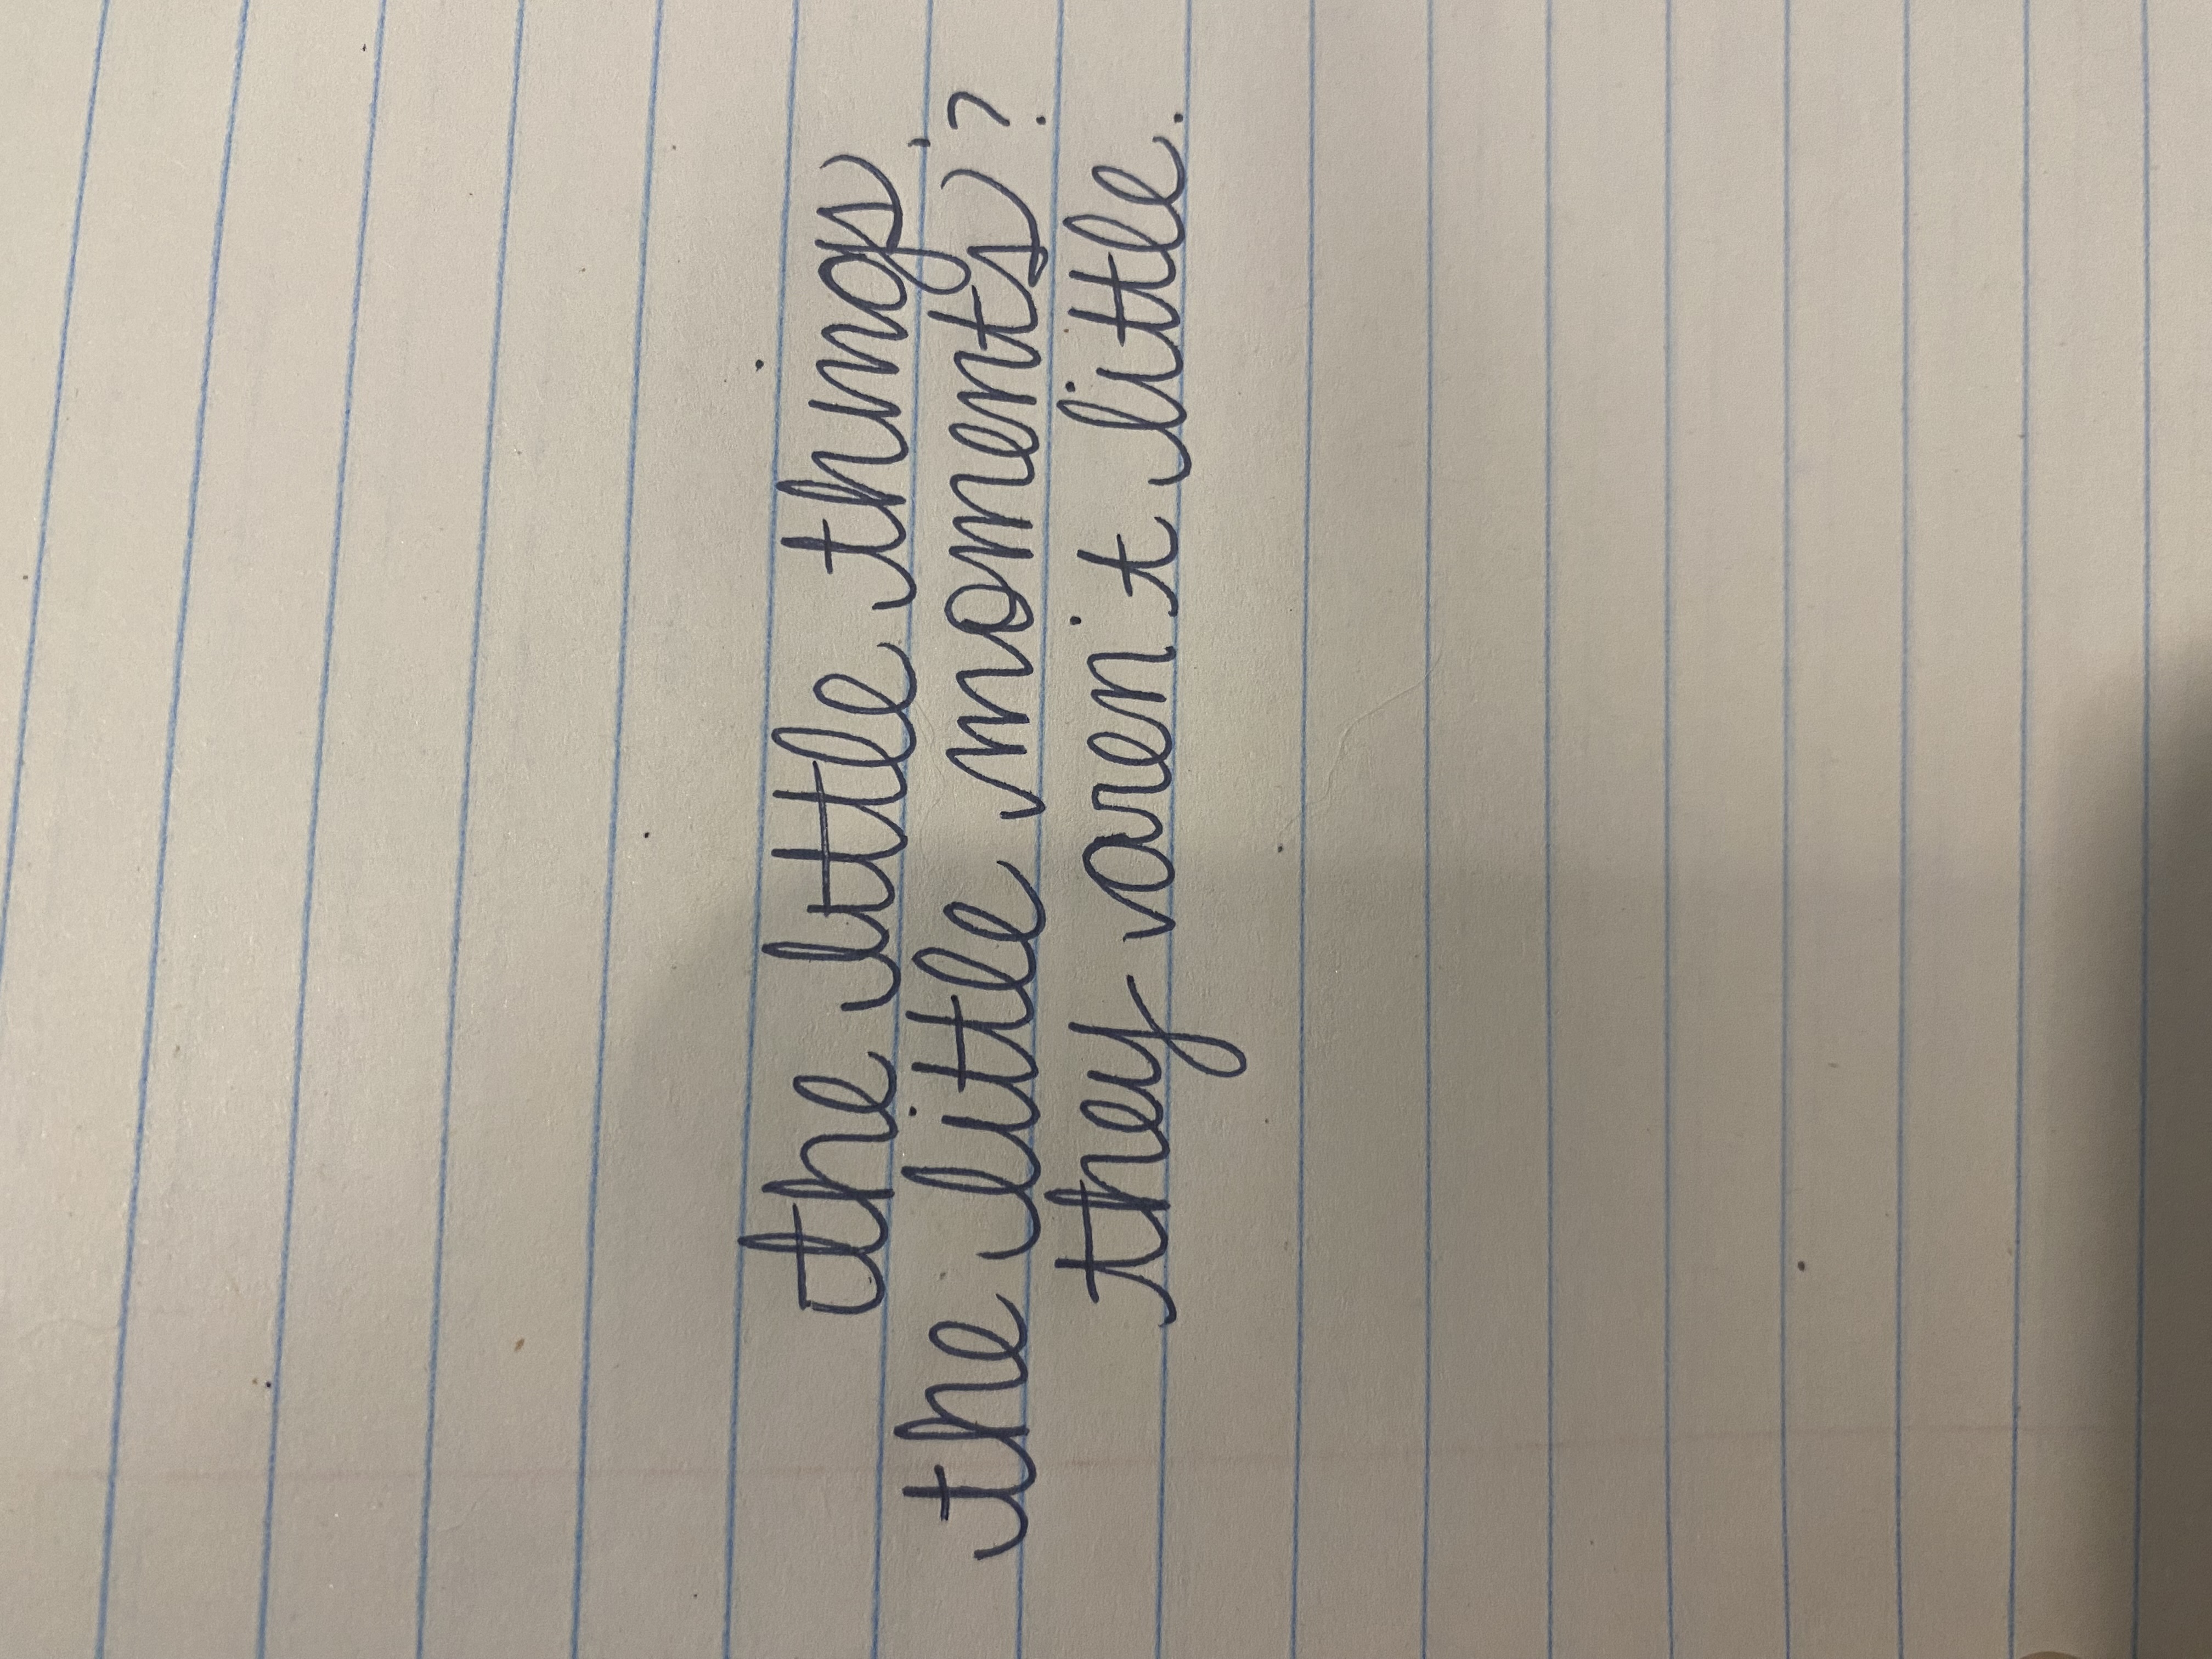 the little things,
the little moments?
they aren't little.